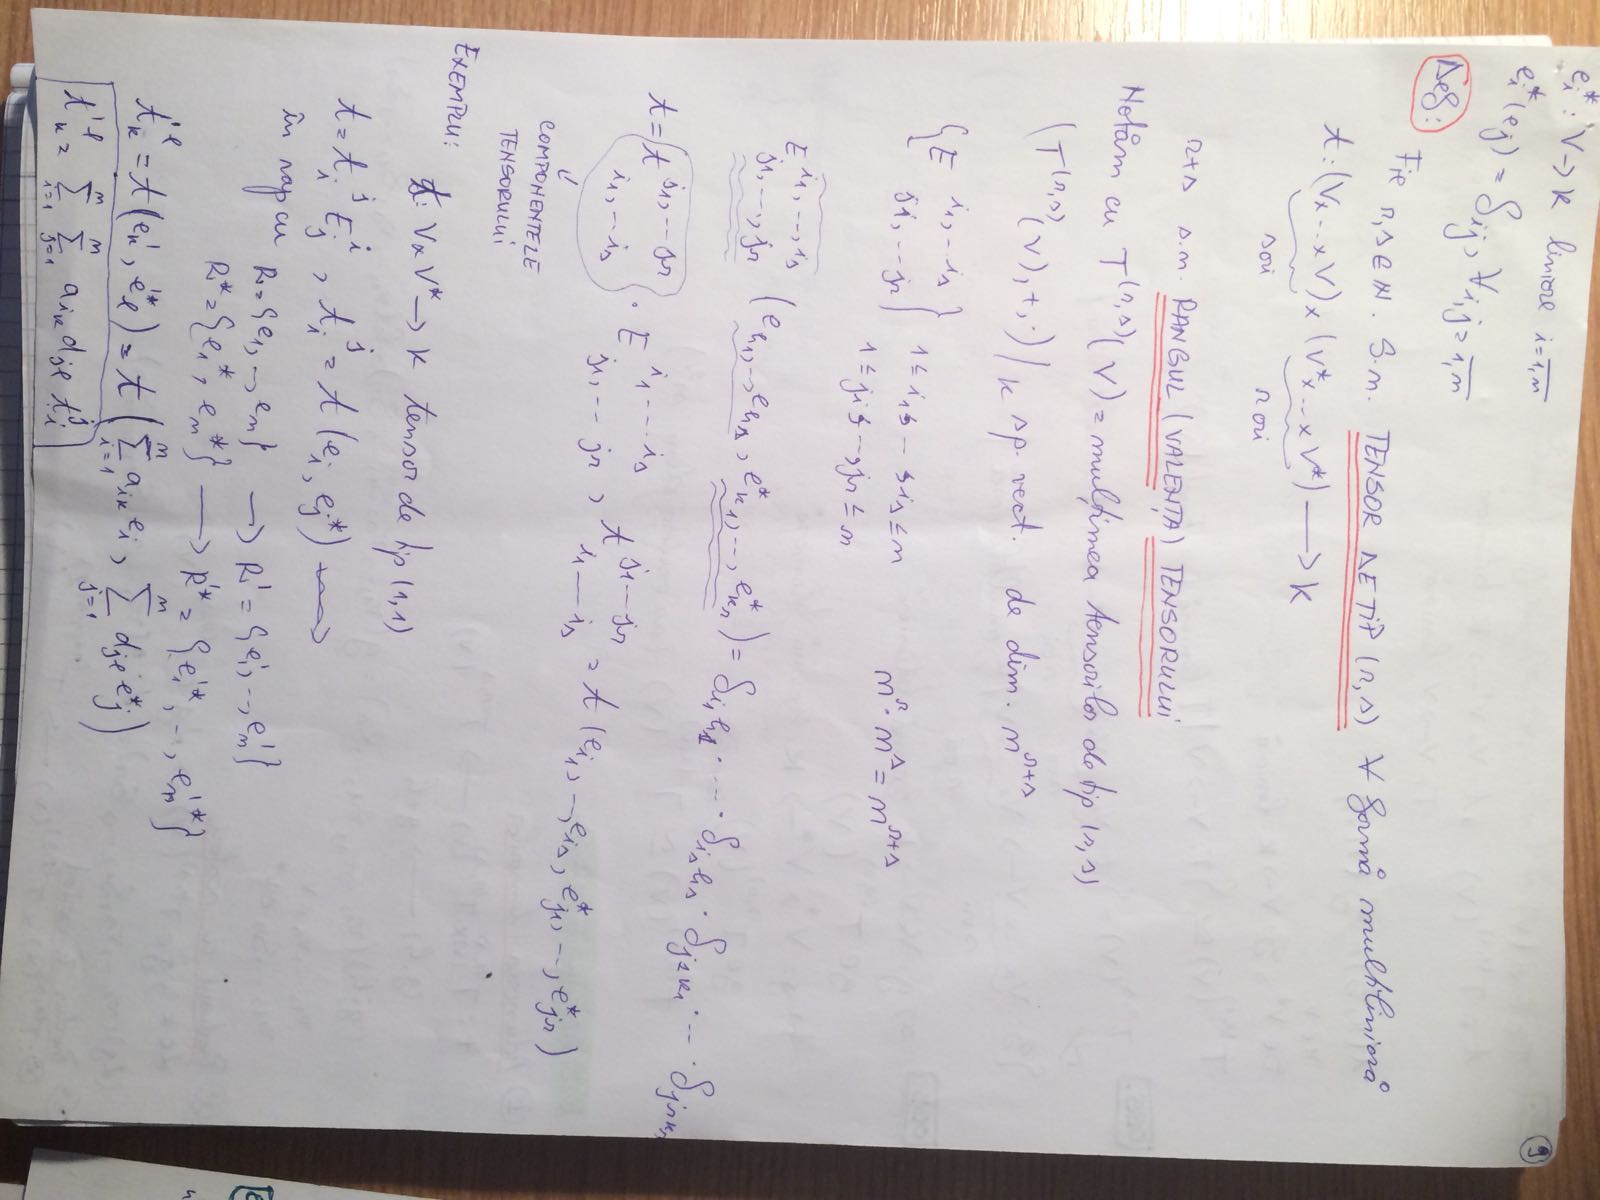 9
e_i^*: V → K liniare i=\overline{1,n}
e_i^*(e_j) = δ_{ij}, ∀ i,j=\overline{1,n}
Def: Fie r,s∈N. S.n. TENSOR DE TIP (r,s) ∀ formă multiliniară
t: (V×...×V) × (V^*×...×V^*) → K
s ori r ori
r+s s.n. RANGUL (VALENȚA) TENSORULUI
Notăm cu T^{(r,s)}(V) = mulțimea tensorilor de tip (r,s)
(T^{(r,s)}(V),+,·)/K sp. vect. de dim. n^{r+s}
{E^{i_1,...i_s}_{j_1,...j_r}} 1≤i_1≤...≤i_s≤n 1≤j_1≤...,j_r≤n n^r·n^s = n^{r+s}
E^{i_1,...,i_s}_{j_1,...,j_r} (e_{h_1},...,e_{h_s}, e^*_{k_1},...,e^*_{k_r}) = δ_{i_1h_1}·...·δ_{i_sh_s}·δ_{j_1k_1}...·δ_{j_rk_r}
t = t^{j_1,...j_r}_{i_1,...i_s} · E^{i_1...i_s}_{j_1...j_r}, t^{j_1...j_r}_{i_1...i_s} = t(e_{i_1},...,e_{i_s}, e^*_{j_1},...,e^*_{j_r})
⇓
COMPONENTELE
TENSORULUI
EXEMPLU:
t: V×V^* → K tensor de tip (1,1)
t = t_i^j E_j^i, t_i^j = t(e_i, e_j^*) →
în rap cu R={e_1,...,e_n} → R' = {e_1',...,e_n'}
R^*={e_1^*, e_n^*} → R'^* = {e_1'^*,...,e_n'^*}
t_k'^l = t(e_k', e_l'^*) = t(\sum_{i=1}^n a_{ik}e_i, \sum_{j=1}^n d_{jl}e_j^*)
t_k'^l = \sum_{i=1}^n \sum_{j=1}^n a_{ik} d_{jl} t_i^j